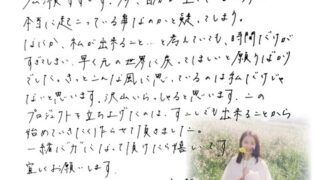 本当に起こっている事なのかと疑ってしまう。
なにか、私が出来ること…と考えていても、時間だけが
すぎてしまい、早く元の世界に戻ってほしいと願うばかり
でした。きっとこんな風に思っているのは私だけじゃ
ないと思います。沢山いらっしゃると思います。この
プロジェクトを立ち上げたのは、すこしでも出来ることから
始めていきたくて作らせて頂きました。
一緒に力になって頂けたら嬉しいです
宜しくお願いします。